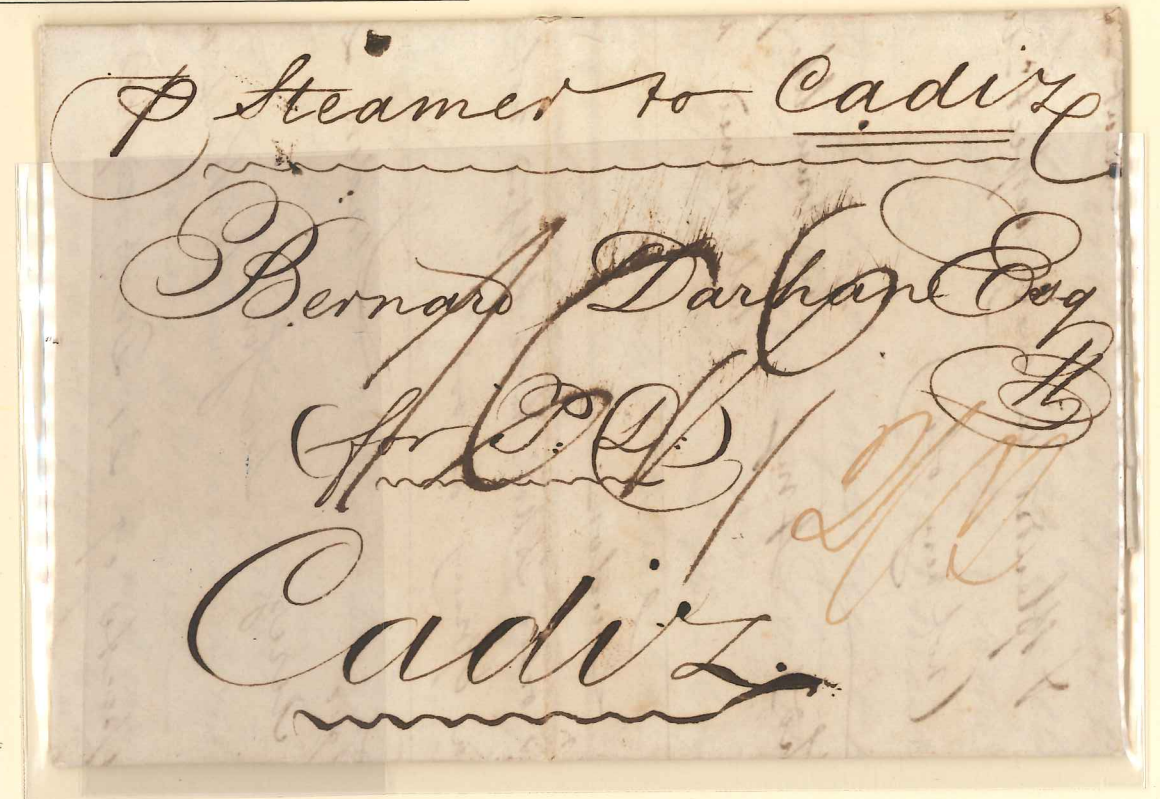 p Steamer to Cadiz
Bernard Darhan Esq
for P. D.
Cadiz.